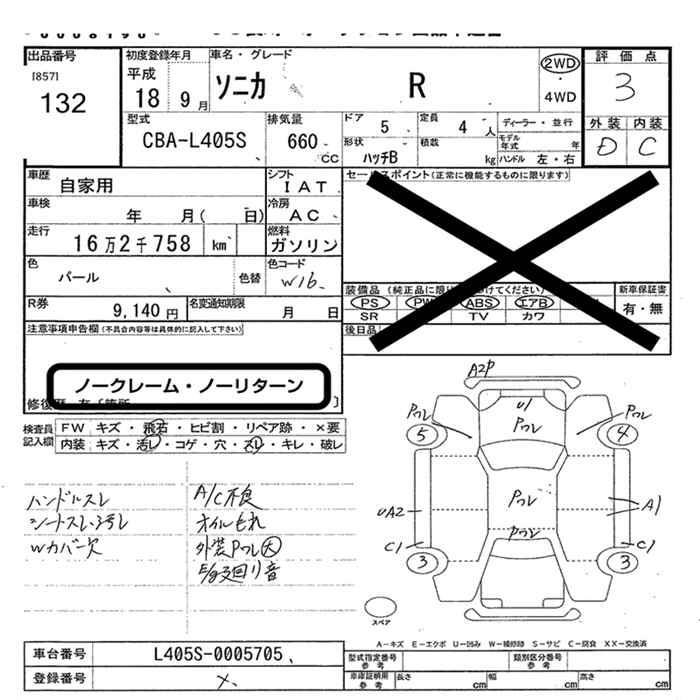 出品番号
[857]
132
初度登録年月
平成
18 9月
車名・グレード
ソニカ R
2WD
・
4WD
評価点
3
外装 内装
D C
型式
CBA-L405S
排気量
660 cc
ドア 5
定員 4 人
ディーラー・並行
形状 ハッチB
積載 kg
モデル年式 年
ハンドル 左・右
車歴 自家用
シフト IAT
車検 年 月( 日)
冷房 AC
走行 16万2千758 km
燃料 ガソリン
色 パール 色替
色コード W16
R券 9,140円
名変通知期限 月 日
セールスポイント(正常に機能するものに限ります)
装備品
PS PW ABS エアB
SR TV カワ
新車保証書
有・無
後日品
注意事項申告欄(不具合内容等は具体的に記入して下さい)
ノークレーム・ノーリターン
検査員記入欄
FW キズ・飛石・ヒビ割・リペア跡・×要
内装 キズ・汚レ・コゲ・穴・スレ・キレ・破レ
ハンドルスレ
シートスレ・汚レ
Wカバー欠
A/C不良
オイルもれ
外装Pワレ大
A2P
U1
Pワレ
Pワレ
Pワレ
5
4
UA2
Pワレ
A1
C1
Pワレ
C1
3
3
スペア
A-キズ E-エクボ U-凹み W-補修跡 S-サビ C-腐食 XX-交換済
車台番号 L405S-0005705
登録番号
型式指定番号参考
類別区分番号参考
車庫証明用参考
長さ cm
幅 cm
高さ cm